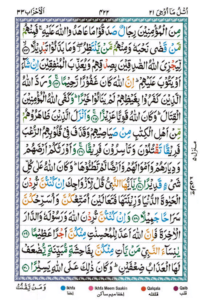 اُتْلُ مَآ اُوْحِىَ ٢١ ٤٢٢ اَلْاَحْزَاب ٣٣
مِنَ الْمُؤْمِنِيْنَ رِجَالٌ صَدَقُوْا مَا عَاهَدُوا اللّٰهَ عَلَيْهِ فَمِنْهُمْ
مَّنْ قَضٰى نَحْبَهٗ وَمِنْهُمْ مَّنْ يَّنْتَظِرُ وَمَا بَدَّلُوْا تَبْدِيْلًا
لِّيَجْزِىَ اللّٰهُ الصّٰدِقِيْنَ بِصِدْقِهِمْ وَيُعَذِّبَ الْمُنٰفِقِيْنَ اِنْ شَآءَ
اَوْ يَتُوْبَ عَلَيْهِمْ اِنَّ اللّٰهَ كَانَ غَفُوْرًا رَّحِيْمًا وَرَدَّ اللّٰهُ
الَّذِيْنَ كَفَرُوْا بِغَيْظِهِمْ لَمْ يَنَالُوْا خَيْرًا وَكَفَى اللّٰهُ الْمُؤْمِنِيْنَ
الْقِتَالَ وَكَانَ اللّٰهُ قَوِيًّا عَزِيْزًا وَاَنْزَلَ الَّذِيْنَ ظَاهَرُوْهُمْ
مِّنْ اَهْلِ الْكِتٰبِ مِنْ صَيَاصِيْهِمْ وَقَذَفَ فِىْ قُلُوْبِهِمُ الرُّعْبَ
فَرِيْقًا تَقْتُلُوْنَ وَتَاْسِرُوْنَ فَرِيْقًا وَاَوْرَثَكُمْ اَرْضَهُمْ
وَدِيَارَهُمْ وَاَمْوَالَهُمْ وَاَرْضًا لَّمْ تَطَئُوْهَا وَكَانَ اللّٰهُ عَلٰى كُلِّ
شَىْءٍ قَدِيْرًا يٰٓاَيُّهَا النَّبِىُّ قُلْ لِّاَزْوَاجِكَ اِنْ كُنْتُنَّ تُرِدْنَ
الْحَيٰوةَ الدُّنْيَا وَزِيْنَتَهَا فَتَعَالَيْنَ اُمَتِّعْكُنَّ وَاُسَرِّحْكُنَّ
سَرَاحًا جَمِيْلًا وَاِنْ كُنْتُنَّ تُرِدْنَ اللّٰهَ وَرَسُوْلَهٗ وَالدَّارَ
الْاٰخِرَةَ فَاِنَّ اللّٰهَ اَعَدَّ لِلْمُحْسِنٰتِ مِنْكُنَّ اَجْرًا عَظِيْمًا
يٰنِسَآءَ النَّبِىِّ مَنْ يَّاْتِ مِنْكُنَّ بِفَاحِشَةٍ مُّبَيِّنَةٍ يُّضٰعَفْ
لَهَا الْعَذَابُ ضِعْفَيْنِ وَكَانَ ذٰلِكَ عَلَى اللّٰهِ يَسِيْرًا
وَمَنْ يَّقْنُتْ
Ikhfa Ikhfa Meem Saakin Qalqala Qalb